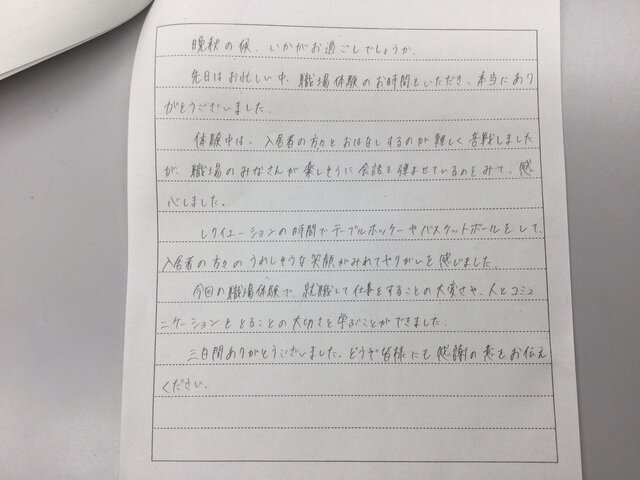 晩秋の候、いかがお過ごしでしょうか。
先日はお忙しい中、職場体験のお時間をいただき、本当にあり
がとうございました。
体験中は、入居者の方々とおはなしするのが難しく苦戦しました
が、職場のみなさんが楽しそうに会話を弾ませているのをみて、感
心しました。
レクイエーションの時間でテーブルホッケーやバスケットボールをして、
入居者の方々のうれしそうな笑顔がみれてやりがいを感じました。
今回の職場体験で、就職して仕事をすることの大変さや、人とコミュ
ニケーションをとることの大切さを学ぶことができました。
三日間ありがとうございました。どうぞ皆様にも感謝の意をお伝え
ください。